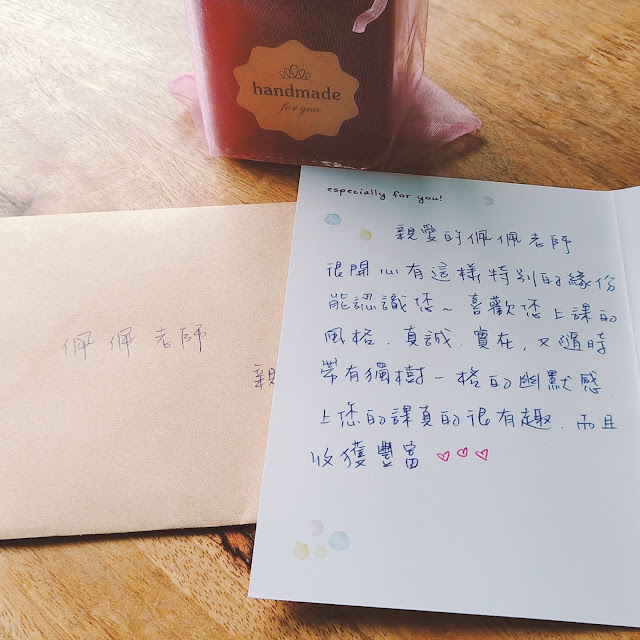 handmade
for you
especially for you!
親愛的佩佩老師
很開心有這樣特別的緣份
能認識您~喜歡您上課的
風格.真誠.實在,又隨時
帶有獨樹一格的幽默感.
上您的課真的很有趣.而且
收獲豐富♡♡♡
佩佩老師
親